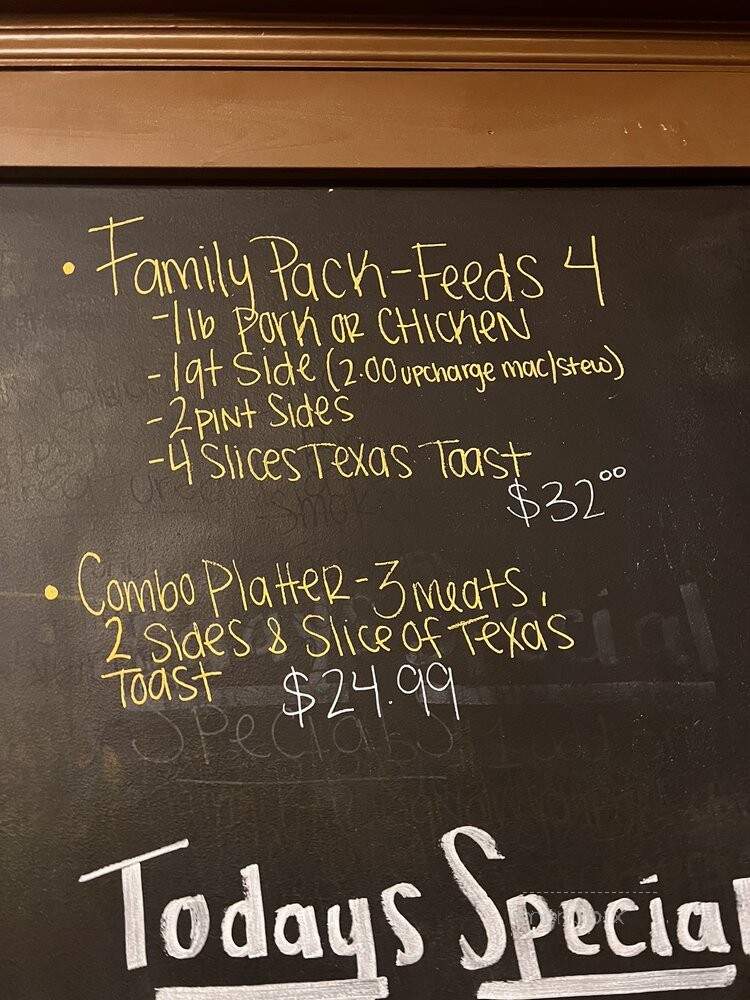 • Family Pack - Feeds 4
- 1 lb Pork or Chicken
- 1 qt Side (2.00 upcharge mac/stew)
- 2 pint Sides
- 4 Slices Texas Toast
$32.00
• Combo Platter - 3 meats,
2 Sides & Slice of Texas
Toast $24.99
Specials
Todays Special